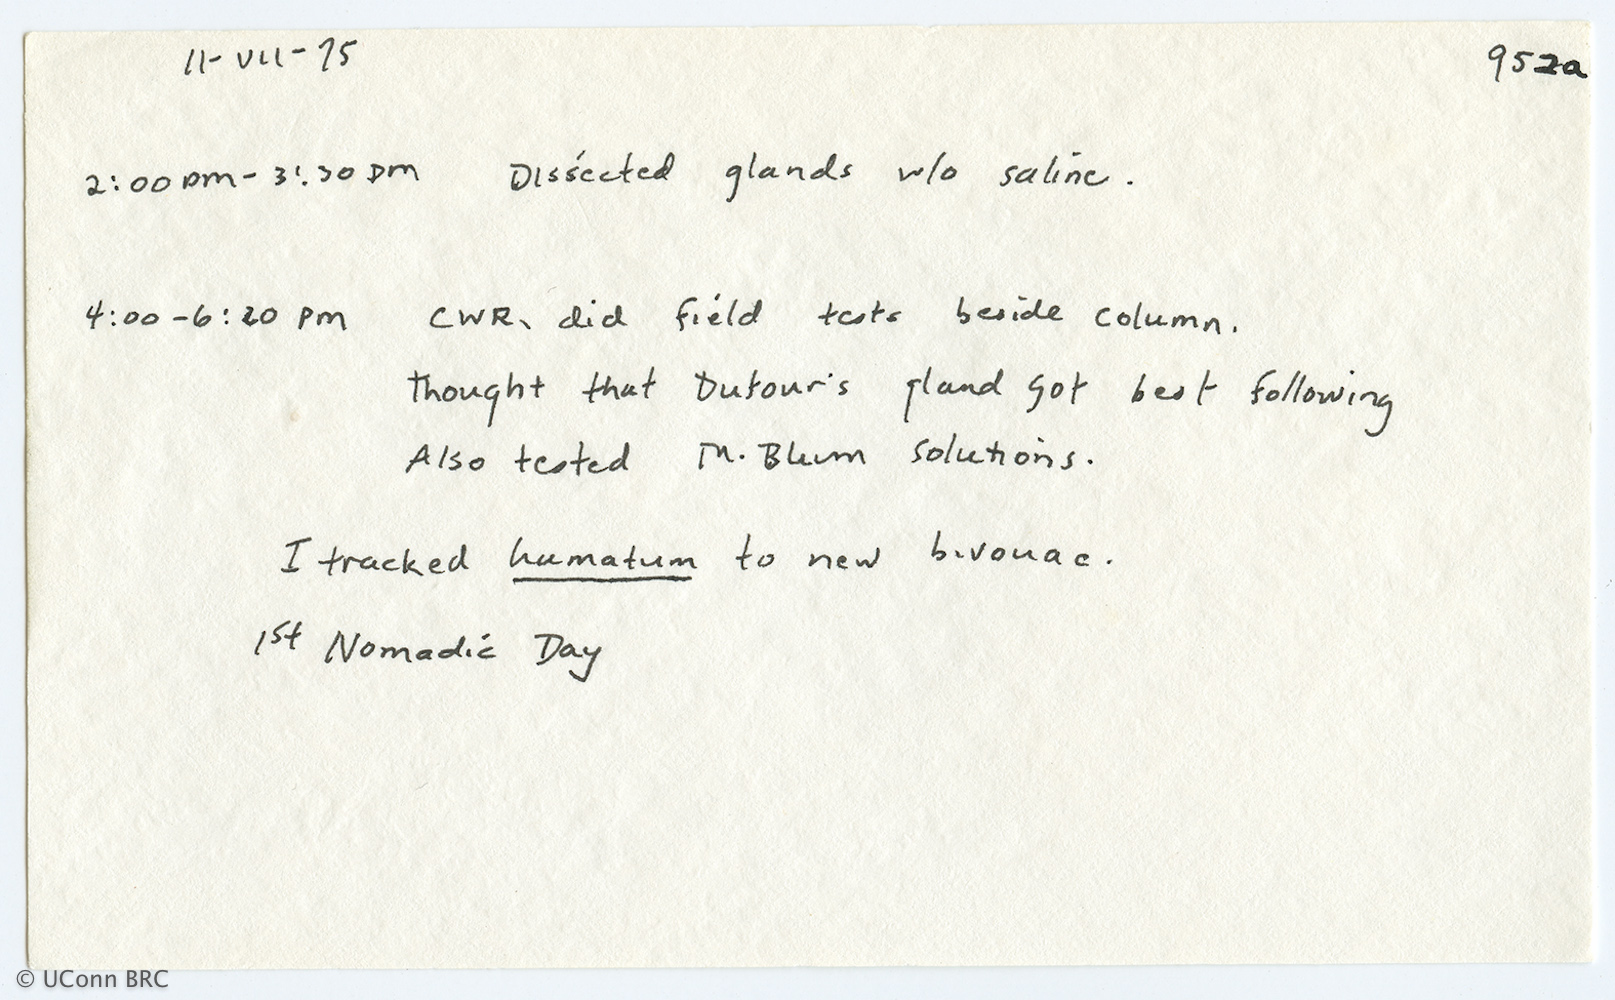 11-VII-75
952a
2:00 pm - 3:30 pm Dissected glands w/o saline.
4:00 - 6:20 pm CWR. did field tests beside column.
Thought that Dufour's gland got best following
Also tested M. Blum solutions.
I tracked hamatum to new bivouac.
1st Nomadic Day
© UConn BRC